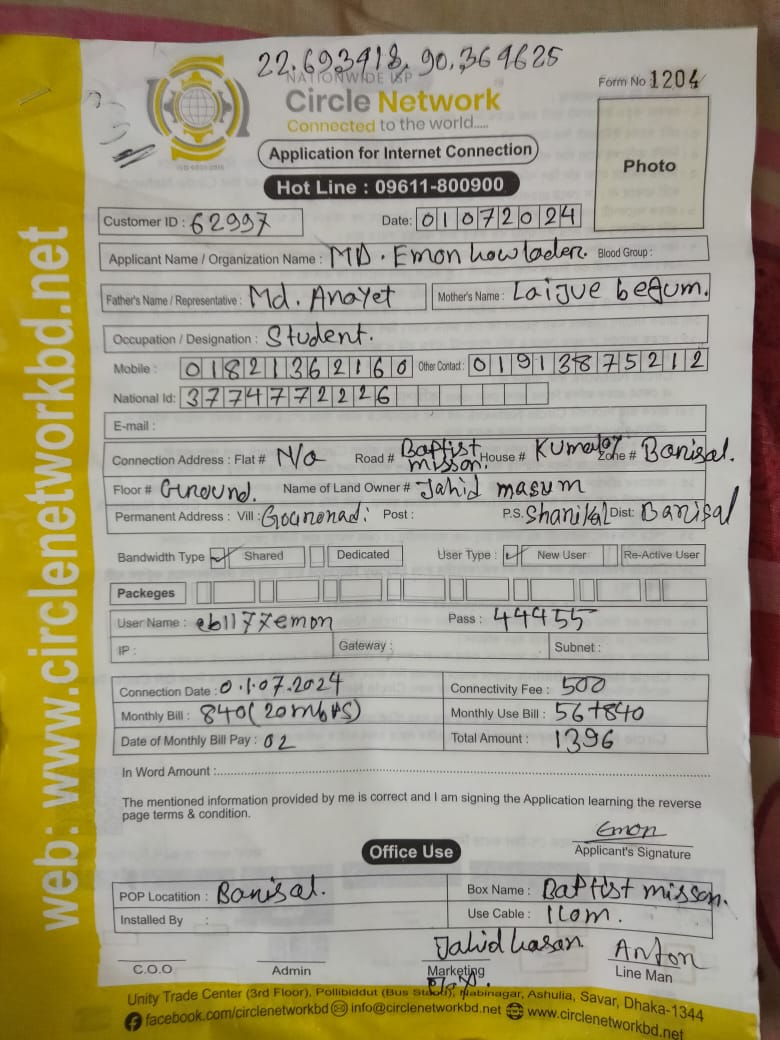 22.693418, 90.364625
NATIONWIDE ISP
Circle Network
Connected to the world.....
Form No 1204
Application for Internet Connection
Photo
Hot Line : 09611-800900
Customer ID : 62997
Date: 01072024
Applicant Name / Organization Name : MD. Emon howlader. Blood Group :
Father's Name / Representative : Md. Anayet Mother's Name : Laijue begum.
Occupation / Designation : Student.
Mobile : 01821362160 Other Contact : 01913875212
National Id: 3774772226
E-mail :
Connection Address : Flat # N/a Road # Baptist misson. House # Zone # Barisal.
Floor # Ground. Name of Land Owner # Jahid masum
Permanent Address : Vill : Gournonad: Post : P.S. Dist: Barisal
Bandwidth Type Shared Dedicated User Type : New User Re-Active User
Packeges
User Name : eb1177emon Pass : 44455
IP : Gateway : Subnet :
Connection Date : 01.07.2024 Connectivity Fee : 500
Monthly Bill : 840(20mbps) Monthly Use Bill : 56+840
Date of Monthly Bill Pay : 02 Total Amount : 1396
In Word Amount :
The mentioned information provided by me is correct and I am signing the Application learning the reverse
page terms & condition.
Emon
Applicant's Signature
Office Use
POP Locatition : Barisal. Box Name : Baptist misson.
Installed By : Use Cable : 110m.
Jahid hasan Anton
C.O.O Admin Marketing Line Man
Unity Trade Center (3rd Floor), Pollibiddut (Bus Stand), Nabinagar, Ashulia, Savar, Dhaka-1344
facebook.com/circlenetworkbd info@circlenetworkbd.net www.circlenetworkbd.net
web: www.circlenetworkbd.net